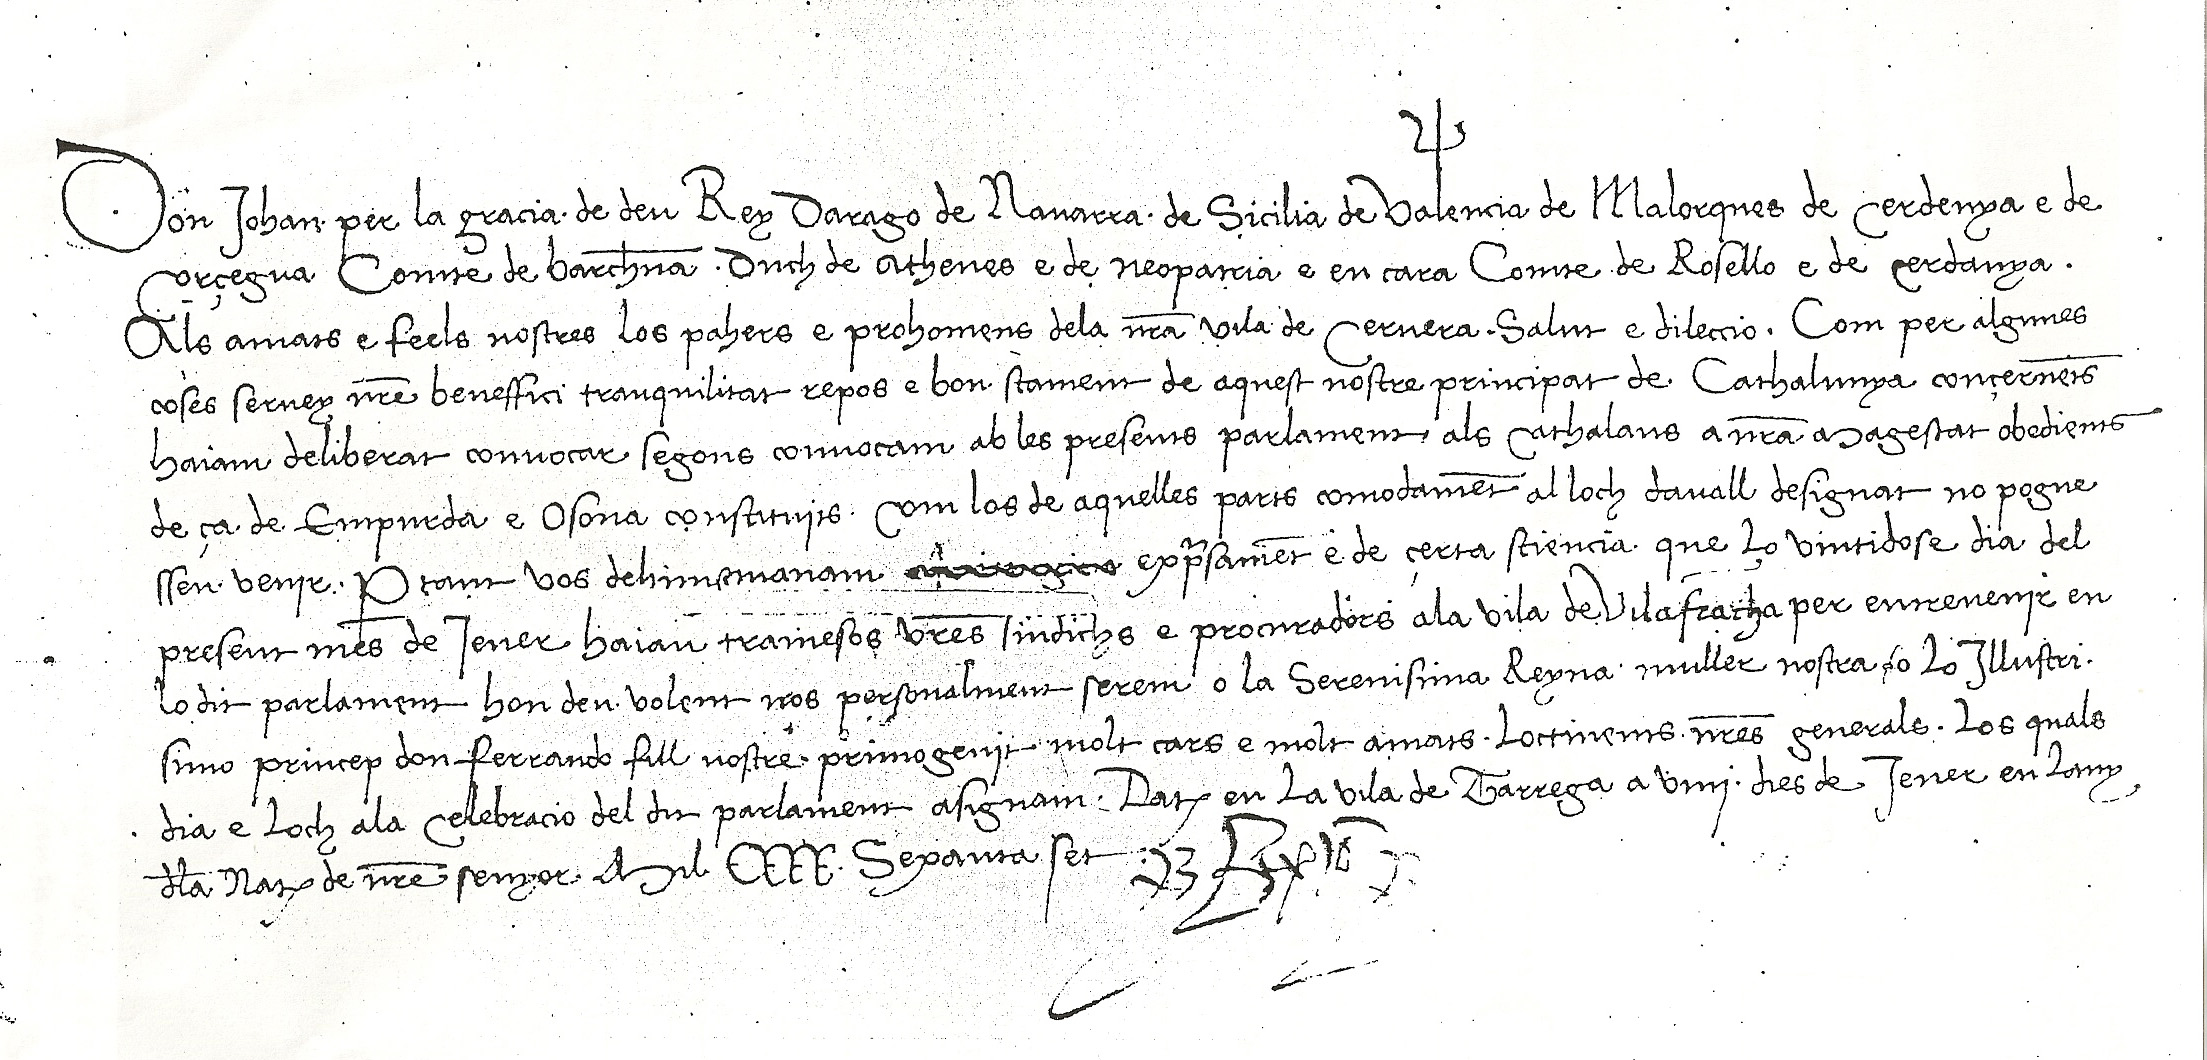 Don Johan per la gracia de deu Rey Darago de Navarra de Sicilia de Valencia de Malorques de Cerdenya e de
Corçegua Comte de barchna. Duch de Athenes e de neopatria e en cara Comte de Rosello e de cerdanya.
Als amats e feels nostres los pahers e prohomens dela nra vila de Cervera. Salut e dileccio. Com per algunes
coses servey nre beneffici tranquilitat repos e bon stament de aquest nostre principat de Cathalunya conçernets
haiam deliberat convocar segons convocam ab les presents parlament als Cathalans a nra Magestat obedients
de ça de Empurda e Osona constituits. Com los de aquelles parts comodamet al loch davall designat no pogue
ssen venir. Ptant vos dehim e manam exprsamet e de çerta sciencia que lo vintidose dia del
present mes de Jener haiau tramesos vres sindichs e procuradors ala vila de Vilafracha per entrevenir en
lo dit parlament hon deu volent nos personalment serem o la Serenisima Reyna muller nostra o lo Illustri.
simo princep don ferrando fill nostre primogenit molt cars e molt amats. Loctinents nres generals. Los quals
dia e loch ala Celebracio del dit parlament asignam. Dat en La vila de Tarrega a viiij. dies de Jener en Lany
dla Nat de nre senyor Mil CCCC. Sexanta set